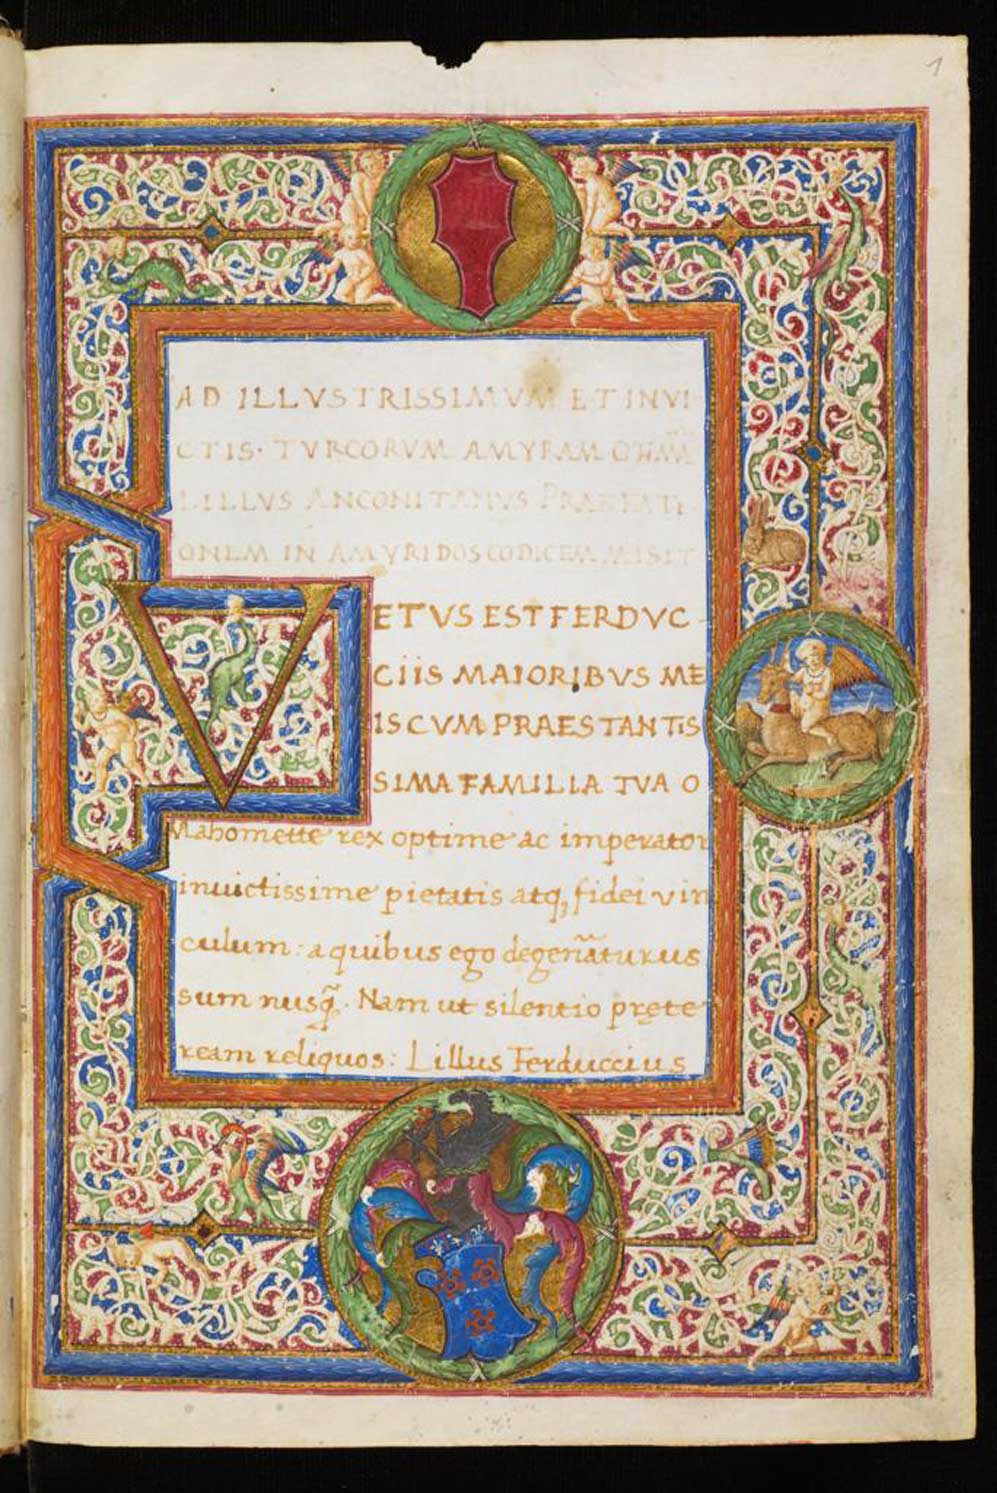 1
AD ILLVSTRISSIMVM ET INVI
CTIS· TVRCORVM AMYRAM OTHMĀ
LILLVS ANCONITANVS PRAEFATI
ONEM IN AMYRIDOS CODICEM MISIT
VETVS EST FERDVC
CIIS MAIORIBVS ME
IS CVM PRAESTANTIS
SIMA FAMILIA TVA O
Mahomette rex optime ac imperator
inuictissime pietatis atq, fidei vin
culum: a quibus ego degeñaturus
sum nusq̃. Nam ut silentio pręte
ream reliquos: Lillus Ferduccius